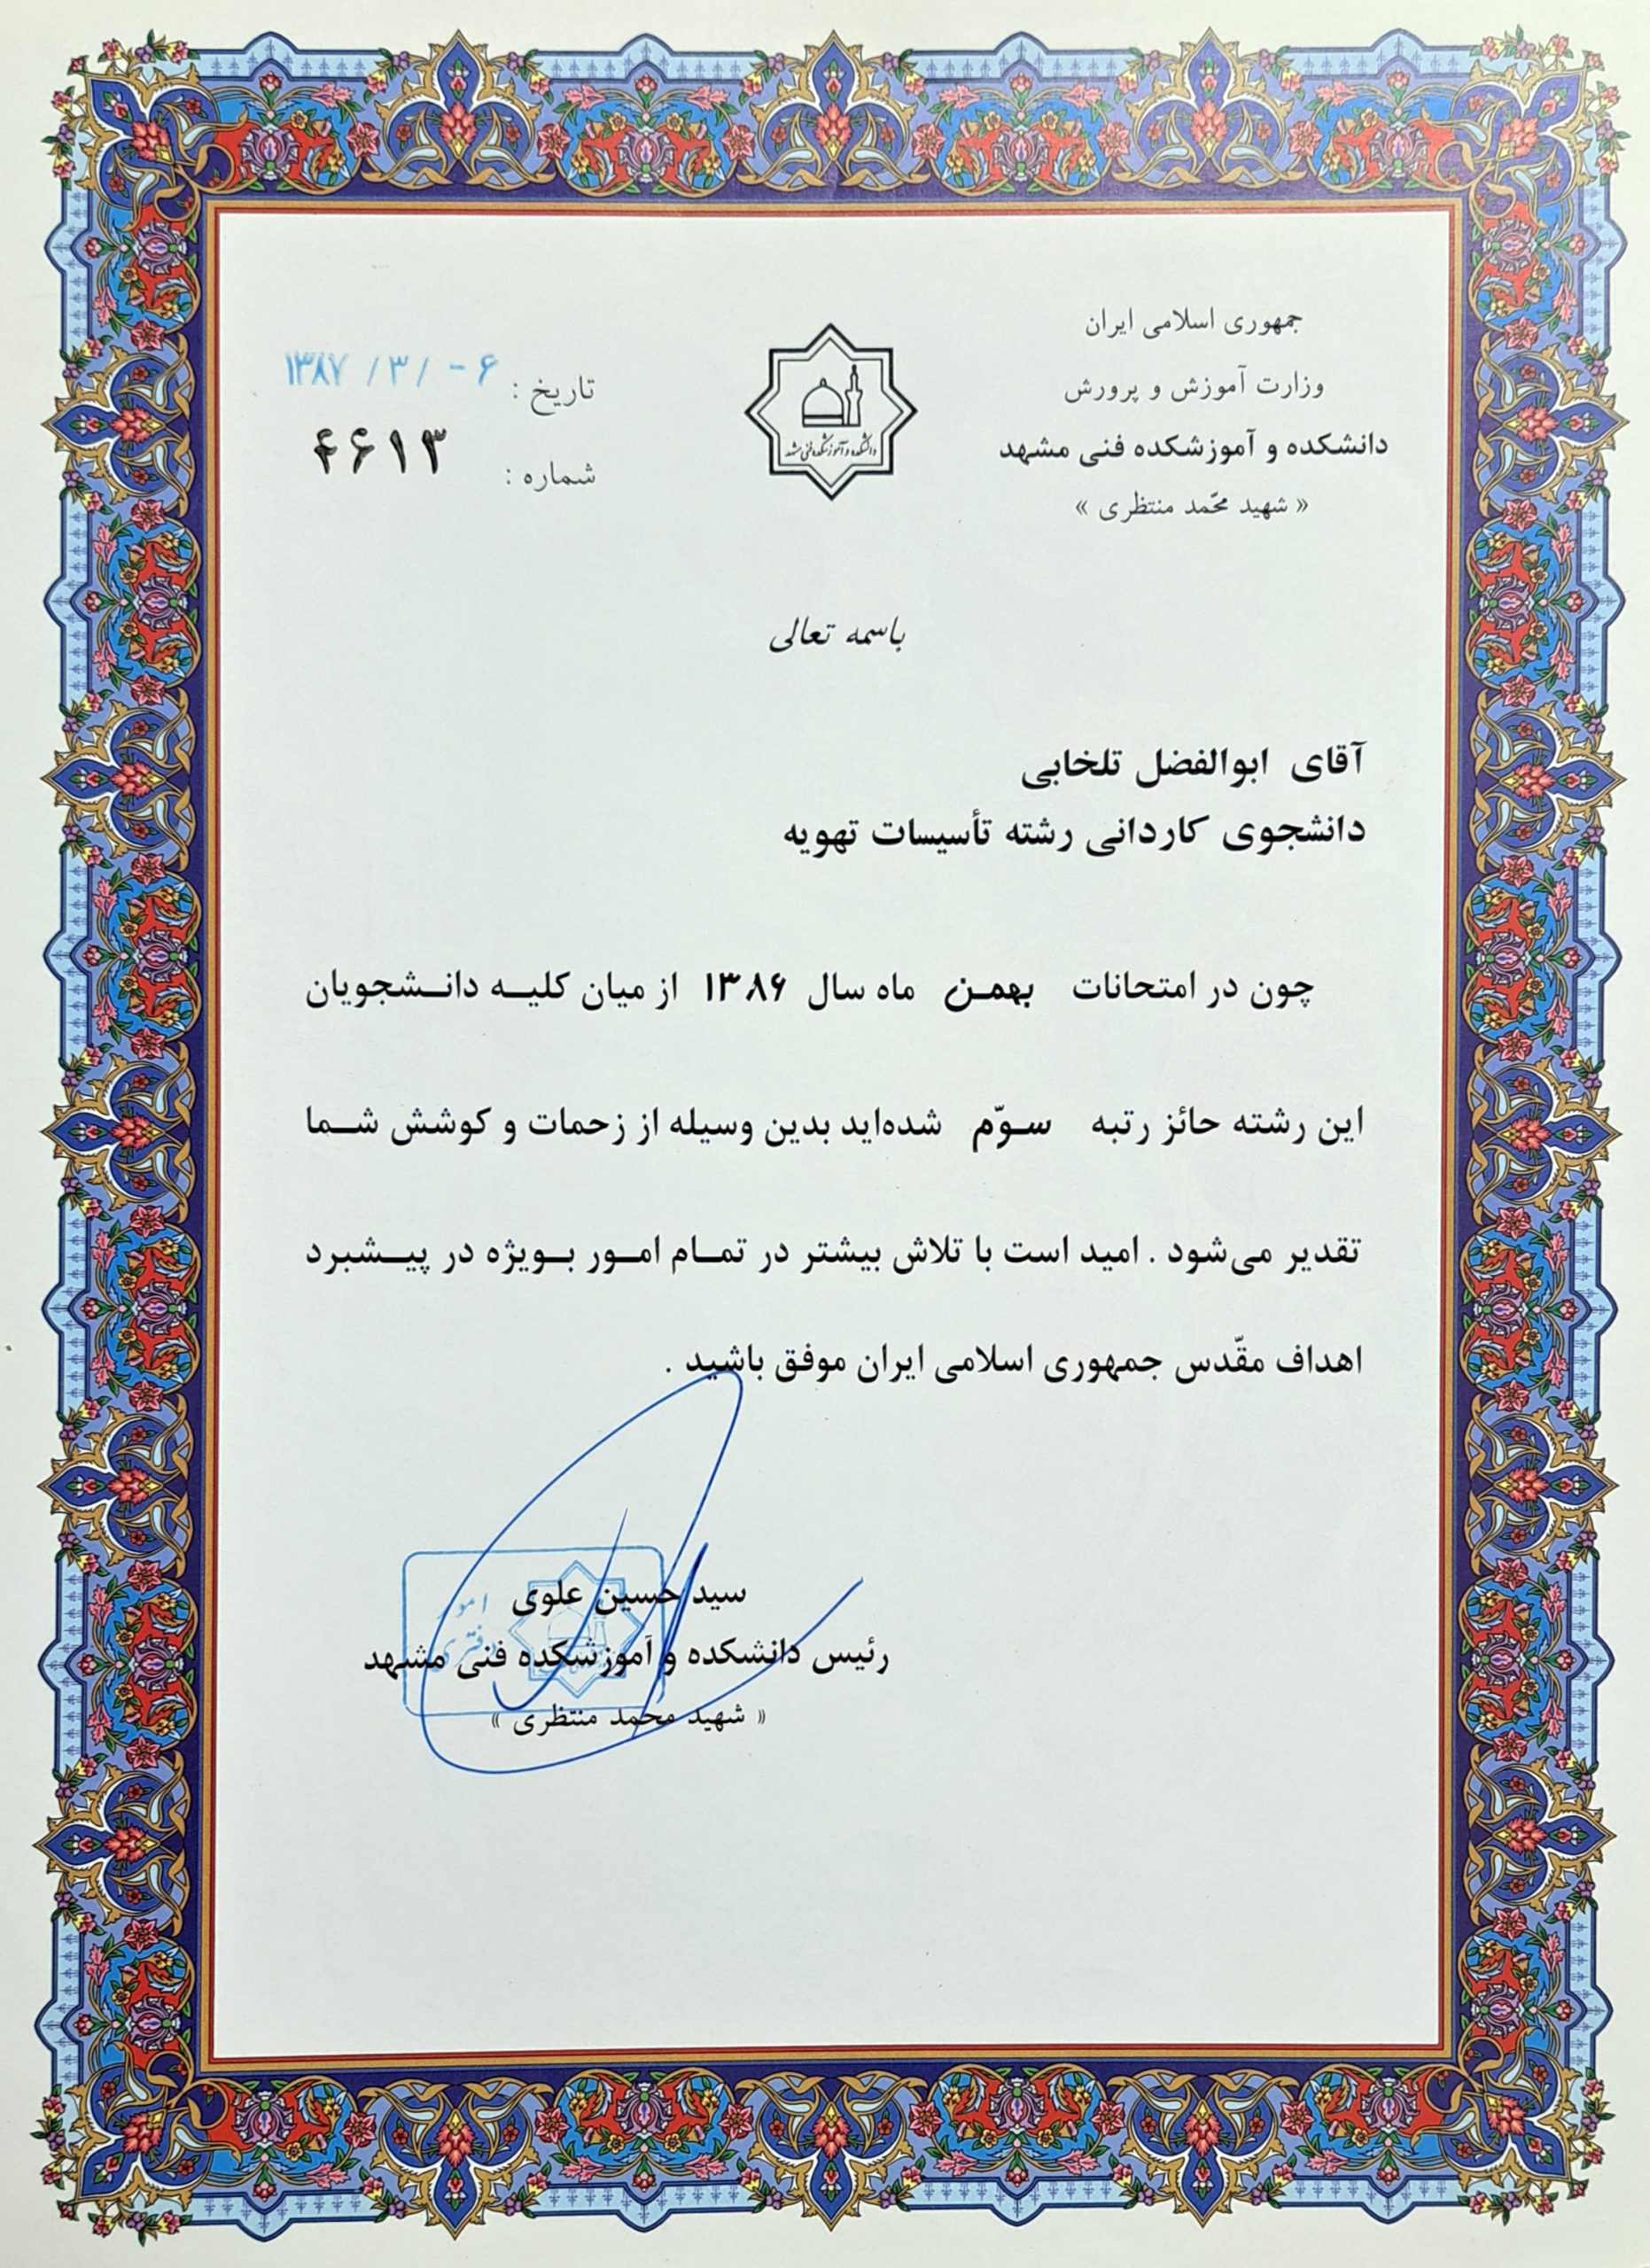 جمهوری اسلامی ایران
وزارت آموزش و پرورش
دانشکده و آموزشکده فنی مشهد
« شهید محمّد منتظری »
دانشکده و آموزشکده فنی مشهد
تاریخ : ۱۳۸۷ / ۳ / - ۶
شماره : ۴۶۱۳
باسمه تعالی
آقای ابوالفضل تلخابی
دانشجوی کاردانی رشته تأسیسات تهویه
چون در امتحانات بهمن ماه سال ۱۳۸۶ از میان کلیه دانشجویان
این رشته حائز رتبه سوّم شده‌اید بدین وسیله از زحمات و کوشش شما
تقدیر می‌شود . امید است با تلاش بیشتر در تمام امور بویژه در پیشبرد
اهداف مقّدس جمهوری اسلامی ایران موفق باشید .
سید حسین علوی
رئیس دانشکده و آموزشکده فنی مشهد
« شهید محمد منتظری »
امور
دفتری